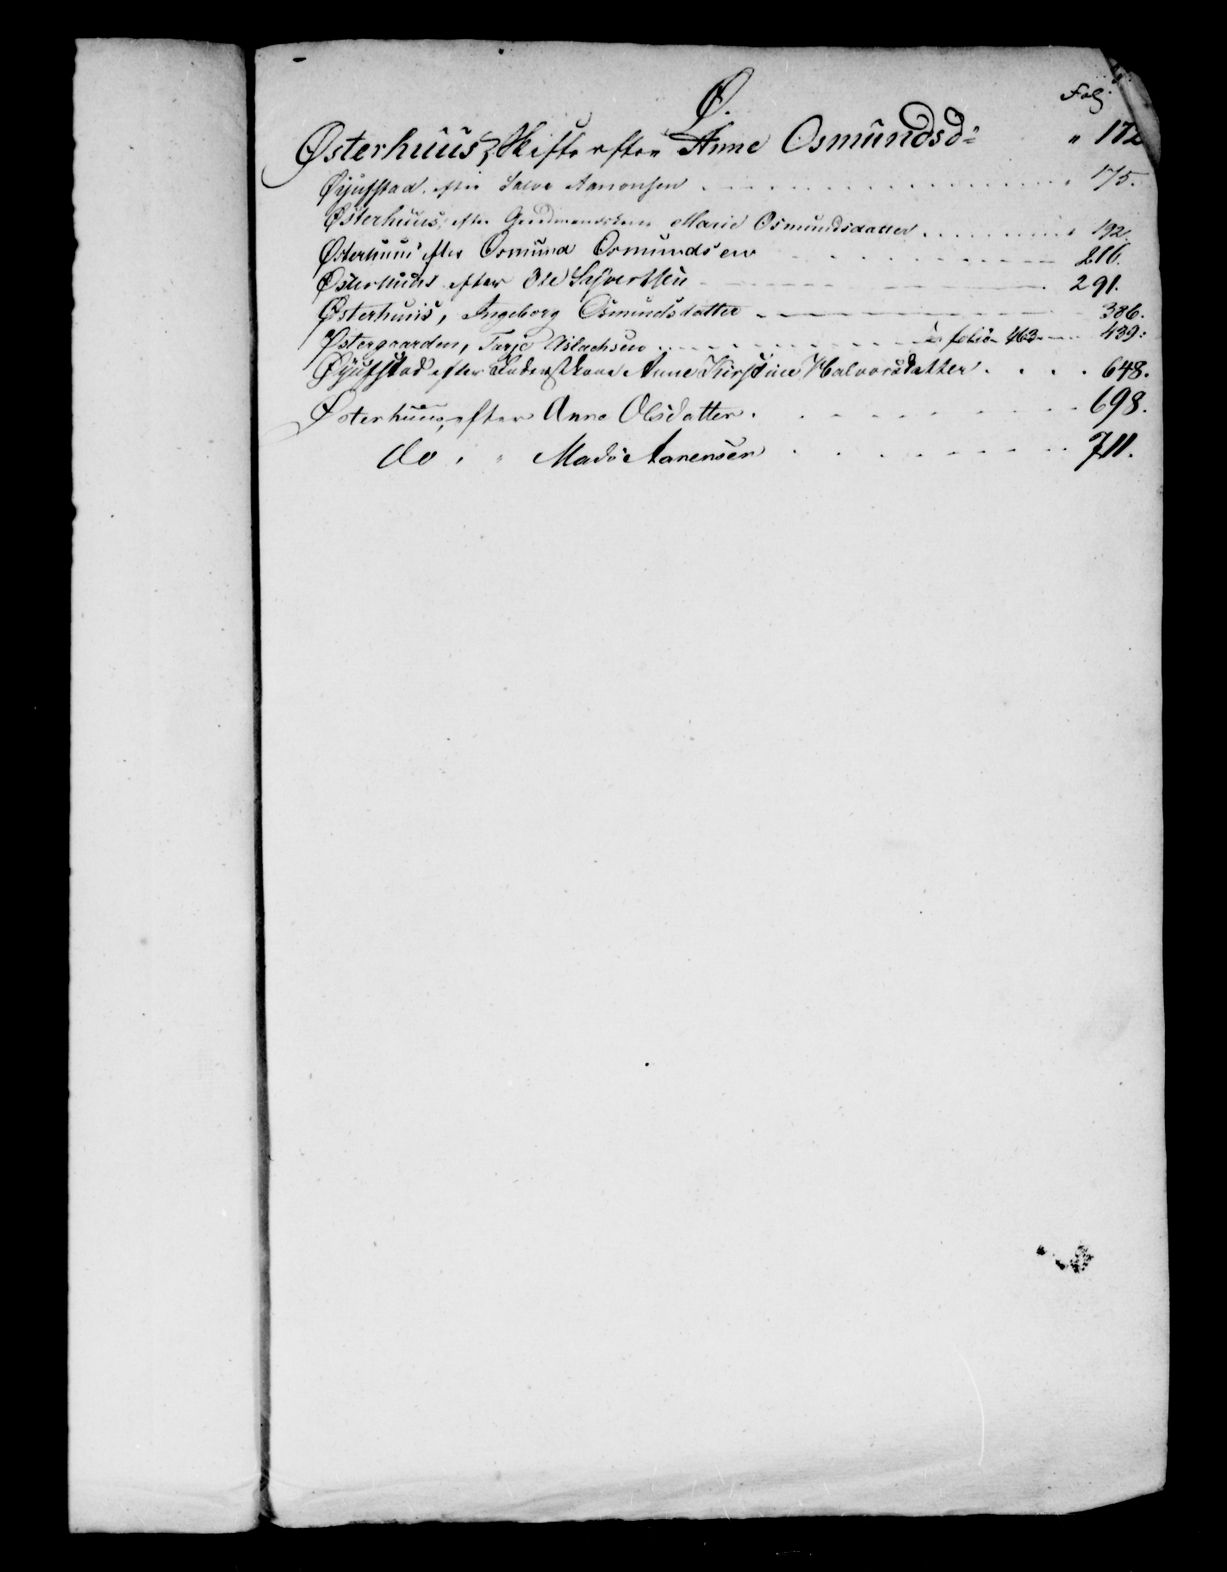 Ø.
Fol.
Østerhuus, Skifte efter Anne Osmundsd: " 172
Øÿufstad efter Salve Aanonsen 175.
Østerhuus, efter Marie Osmundsdatter 192.
Østerhuus efter Osmund Osmundsen 216.
Østerhuus efter Ole Sÿvertsen 291.
Østerhuus, Ingeborg Osmundsdatter 386.
Østergaarden, Tarje Aslachsen & folio 463 439:
Øÿufstad efter Enkens Anne Kirstine Halvorsdatter 648.
Østerhuus, efter Anne Olsdatter 698.
do " Mads Aanensen 711.